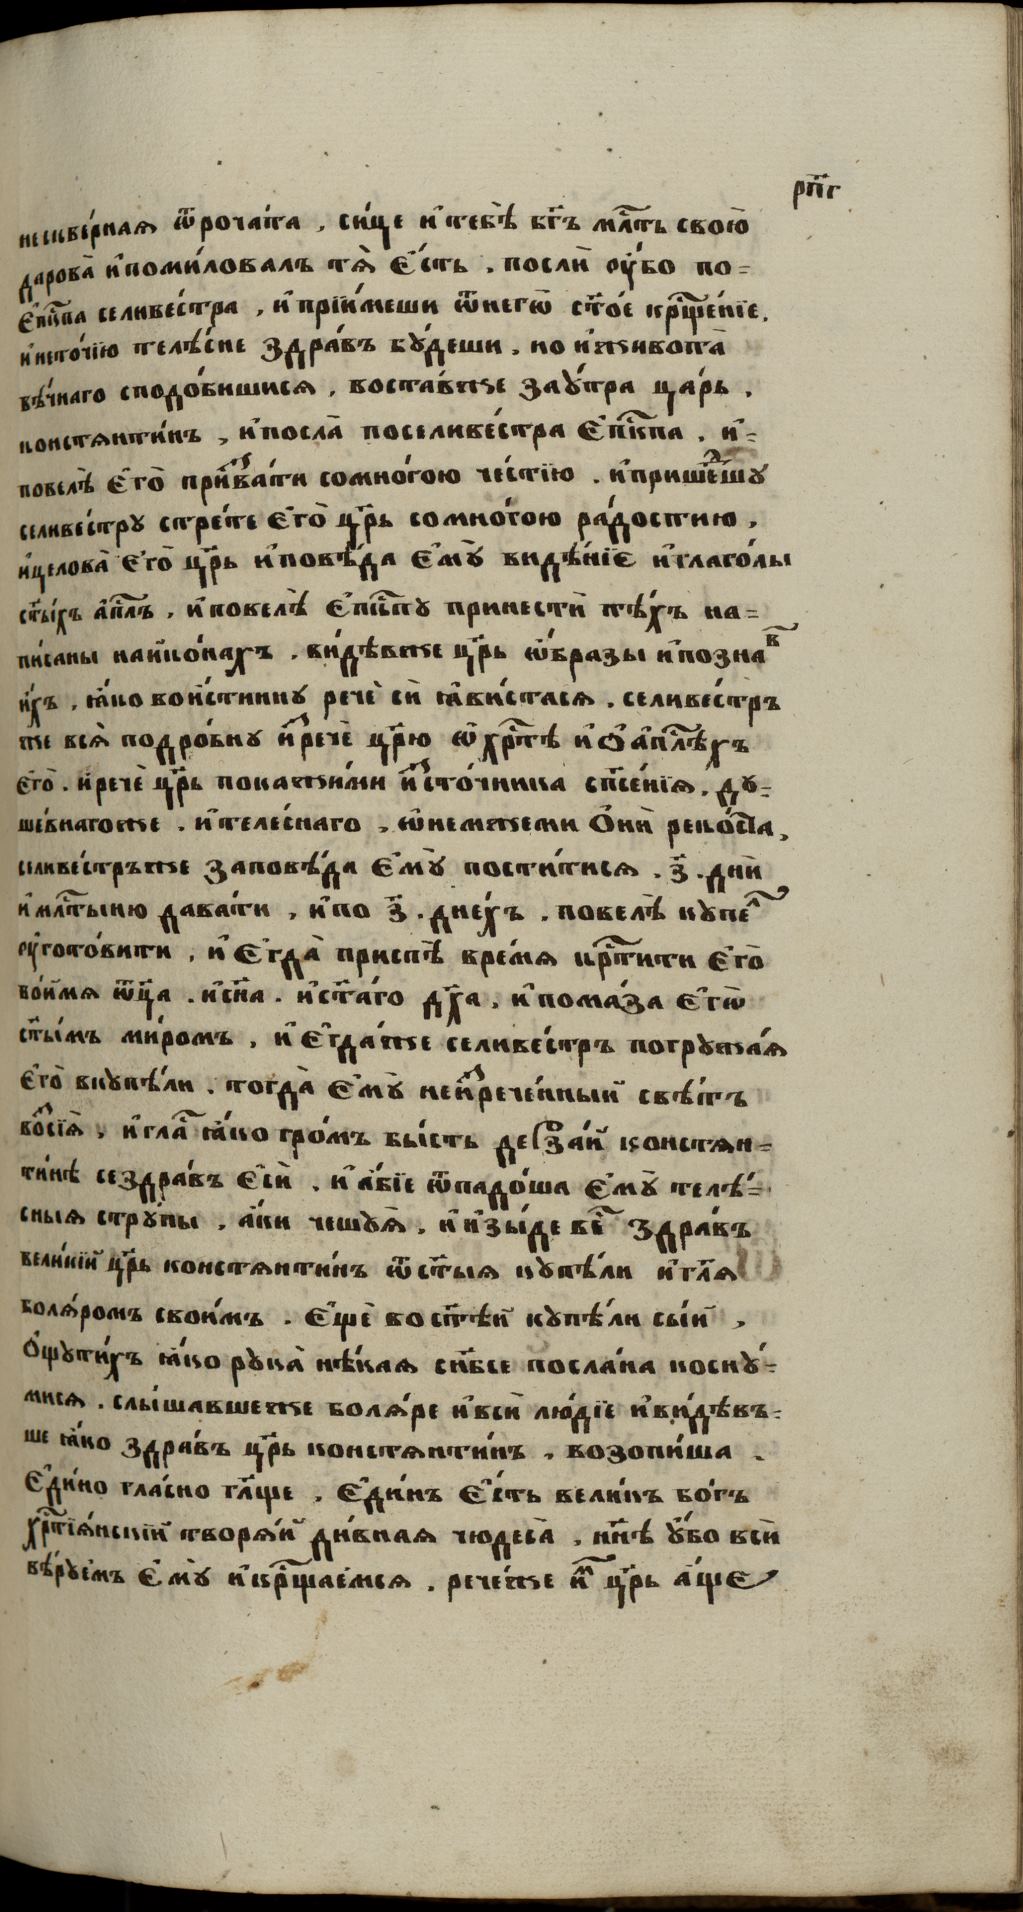 рп҃г
нескве́рная ѿроча́та , си́це и҆ тебѣ̀ бг҃ъ мл҇ть свою̀
дарова̀ и҆поми́ловалъ тѧ̀ є҆́сть . послѝ ᲂу҆́бо по=
є҆пп҇па селиве́стра , и҆ прїи́меши ѿнегѡ̀ ст҃о́е крщ҃е́нїе .
и҆ нето́чїю телѣ́сне здра́въ бу́деши , но и҆живота̀
вѣ́чнаго сподо́бишися , воста́вже заꙋ́тра ца́рь ,
констянти́нъ , и҆посла̀ поселиве́стра є҆пк҇па . и҆=
повелѣ̀ є҆го̀ призва́ти сомно́гою че́стїю . и҆прише́дшу
селиве́стру стре́те є҆го̀ цр҃ь сомно́гою ра́достию ,
и҆целова̀ є҆го̀ цр҃ь и҆повѣ́да є҆мꙋ̀ видѣ́нїє и҆глаго́лы
ст҃ы́хъ а҆пл҃ъ , и҆повелѣ̀ є҆пкп҇у принестѝ тѣ́хъ на=
пи́саны наико́нахъ . ви́дѣвже цр҃ь ѡ҆́бразы и҆познав
и҆́хъ , ꙗ҆́ко вои́стинну речѐ сѝ ꙗ҆ви́стася . селиве́стръ
же вся̀ подро́бну и҆зречѐ цр҃ю ѡ҆хрт҇ѣ̀ и҆ ѻ҆ а҆пл҇ѣхъ
є҆го̀ . и҆речѐ цр҃ь покажи́ми и҆сто́чника сп҃се́нїя . ду=
ше́внагоже . и҆теле́снаго , ѡ҆не́мжеми ѻ҆нѝ реко́ста ,
селиве́стръже заповѣ́да є҆мꙋ̀ пости́тися . з҃ . днѝ
и҆ мл҇тыню дава́ти , и҆по з҃ . дне́хъ . повелѣ̀ купел
ᲂу҆гото́вити , и҆ є҆гда̀ приспѣ̀ вре́мя крт҇ити є҆го̀
вои́мя ѻ҆ц҃а . и҆сн҃а . и҆ст҃а́го дх҃а , и҆ пома́за є҆гѡ̀
ст҃ы́мъ ми́ромъ , и҆ є҆гда́же селиве́стръ погружа́я
є҆го̀ вкупѣ́ли . тогда̀ є҆мꙋ̀ неизрече́нный свѣ́тъ
возсїѧ̀ , и҆ гла҇ ꙗ҆́ко гро́мъ бы́сть дерза́й констян=
ти́нѣ се здра́въ є҆сѝ . и҆ а҆́бїе ѿпадо́ша є҆мꙋ̀ телѣ́=
сныя стру́пы , а҆́ки чешуя̀ , и҆ и҆зы́де ве҇ здра́въ
вели́кїй цр҃ь констянти́нъ ѿст҃ы́я купѣ́ли и҆ гл҃я
боля́ромъ свои́мъ . є҆щѐ во ст҃ѣ́й купѣ́ли сы́й ,
ѻ҆щути́хъ ꙗ҆́ко рука̀ нѣ́кая снб҃се по́слана косну́=
мися . слы́шавшеже боля́ре и҆всѝ лю́дїе и҆ви́дѣвъ=
ше ꙗ҆́ко здра́въ цр҃ь констянти́нъ , возопи́ша .
є҆ди́но гла́сно гл҃ще , є҆ди́нъ є҆́сть вели́къ бо́гъ
хрт҇їя́нскїй творя́й ди́вная чюдеса̀ , нн҃ѣ ᲂу҆́бо всѝ
вѣ́руемъ є҆мꙋ̀ и҆ крщ҃а́емся . рече́же и҆м цр҃ь а҆́ще